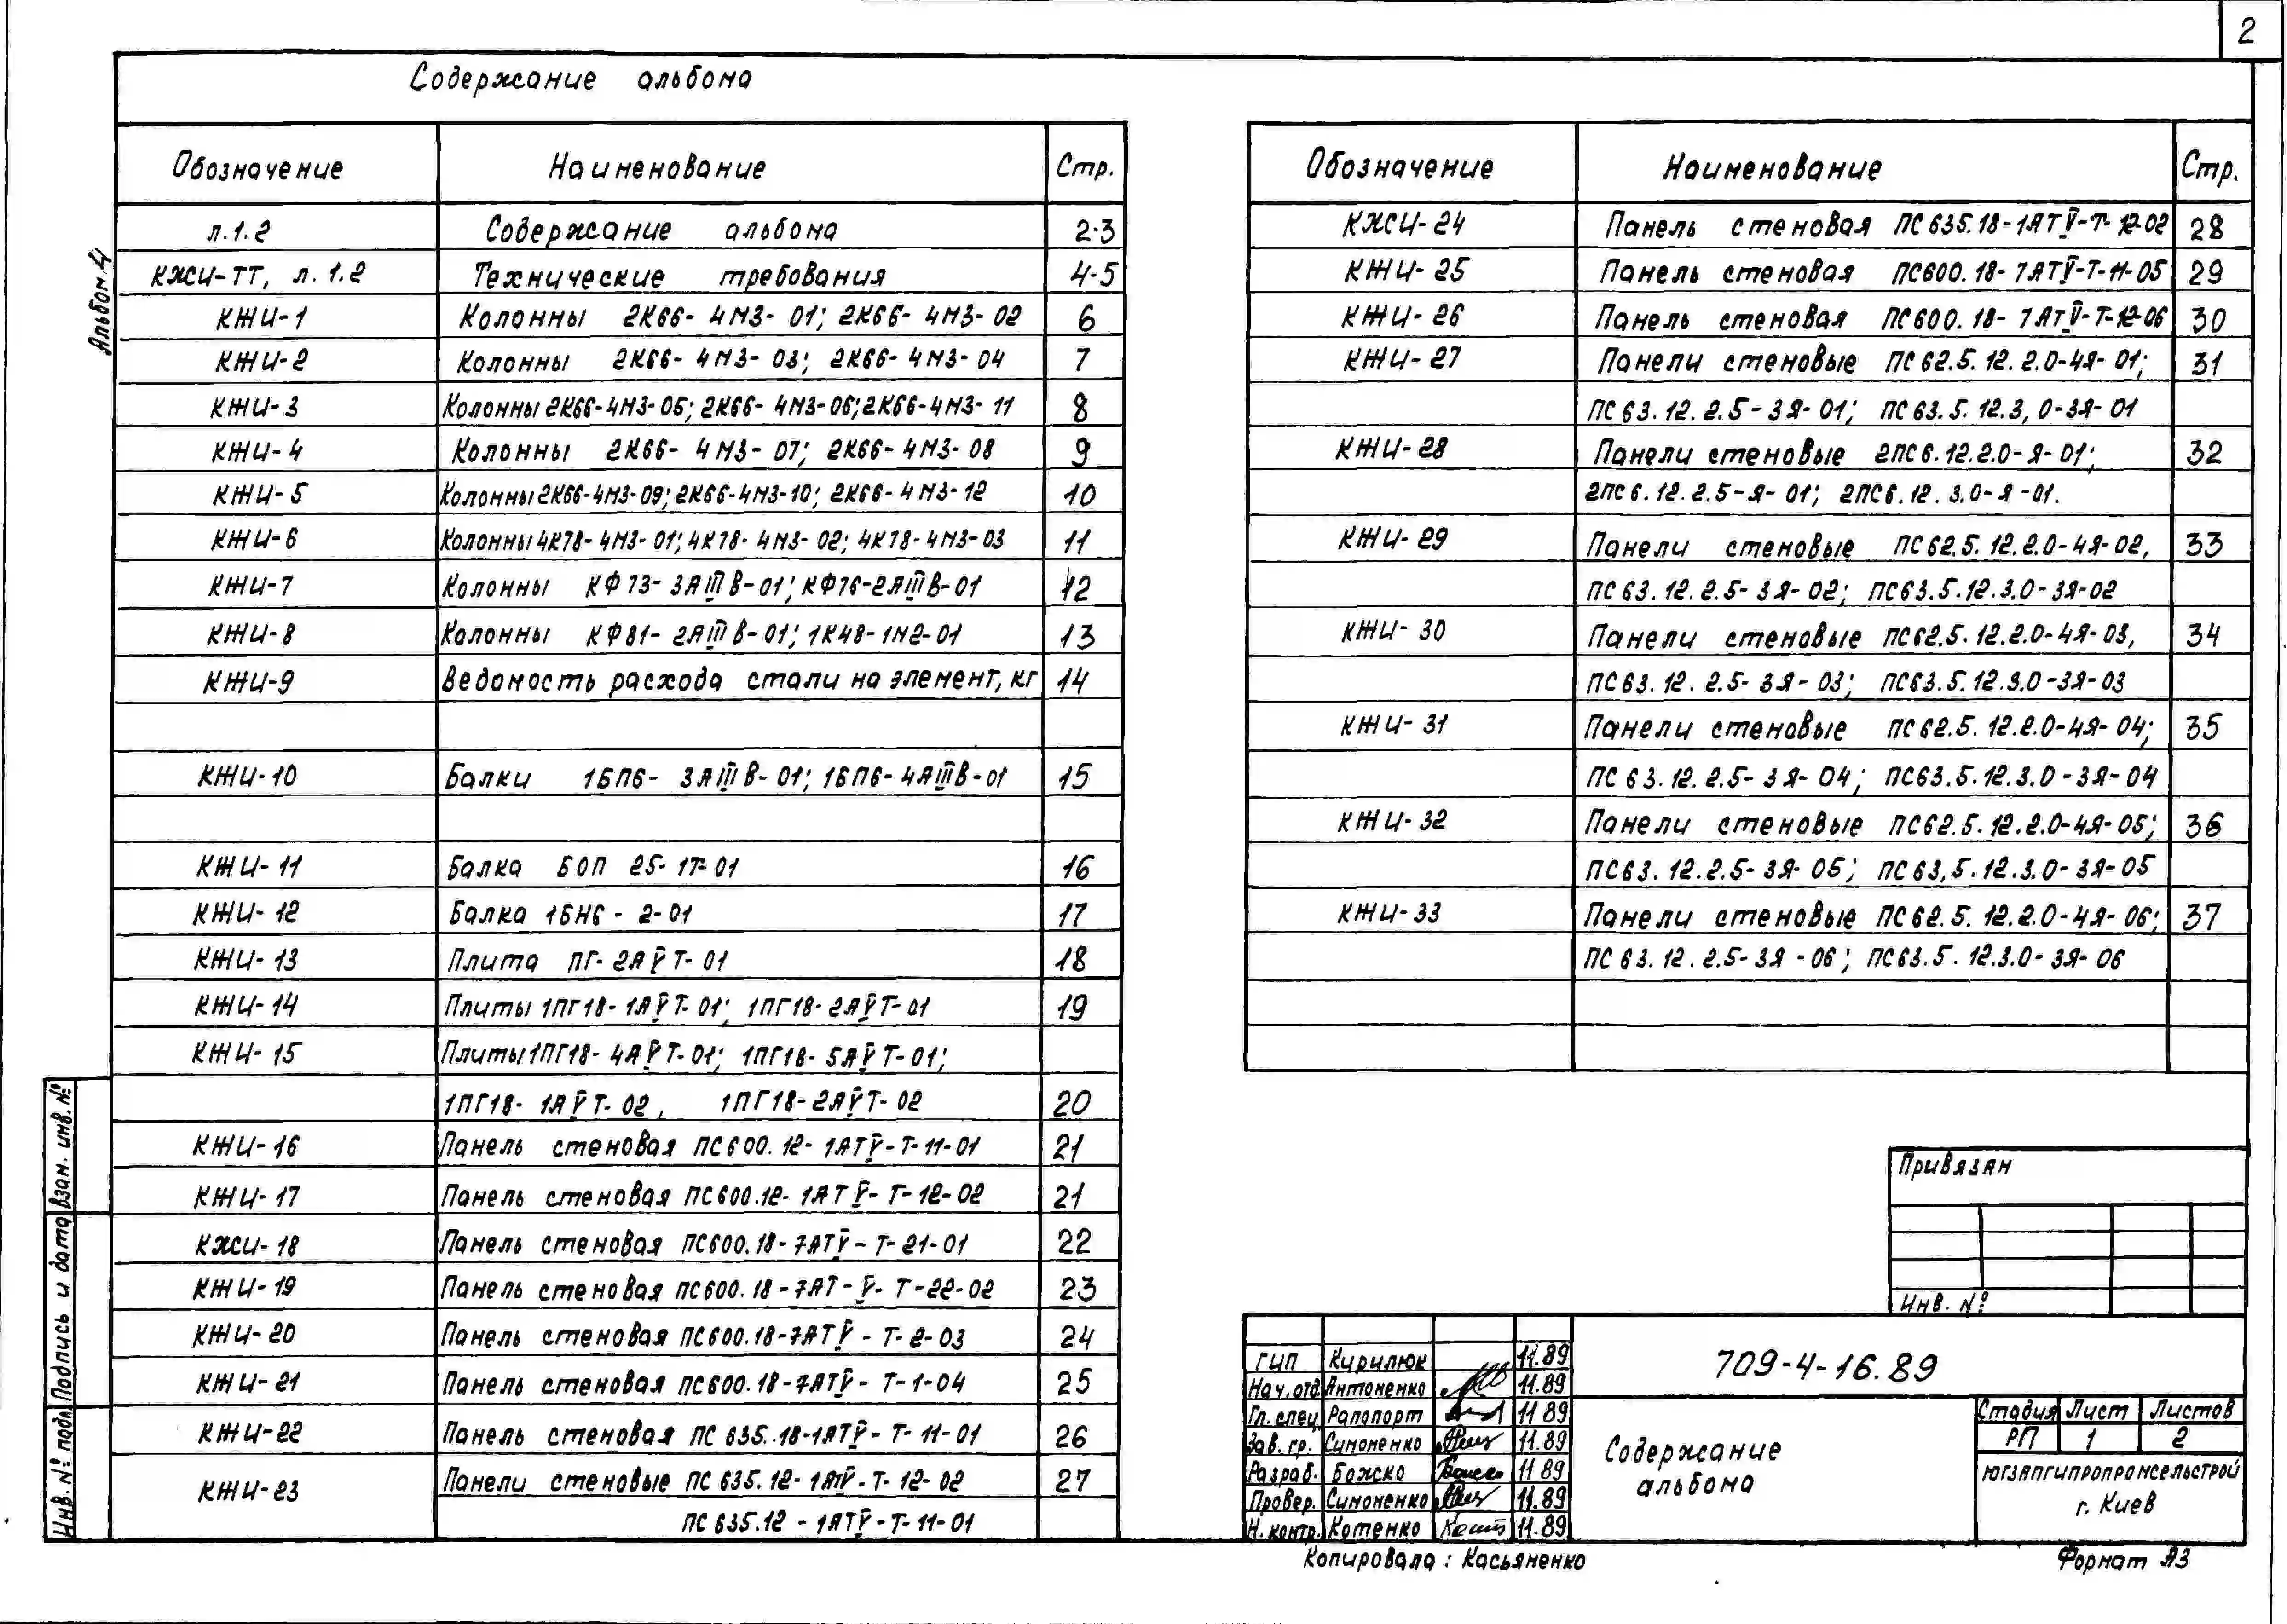 2
Содержание альбома
Альбом 4
Обозначение Наименование Стр.
л.1.2 Содержание альбома 2-3
КЖИ-ТТ, л. 1.2 Технические требования 4-5
КЖИ-1 Колонны 2К66-4М3-01; 2К66-4М3-02 6
КЖИ-2 Колонны 2К66-4М3-03; 2К66-4М3-04 7
КЖИ-3 Колонны 2К66-4М3-05; 2К66-4М3-06; 2К66-4М3-11 8
КЖИ-4 Колонны 2К66-4М3-07; 2К66-4М3-08 9
КЖИ-5 Колонны 2К66-4М3-09; 2К66-4М3-10; 2К66-4М3-12 10
КЖИ-6 Колонны 4К78-4М3-01; 4К78-4М3-02; 4К78-4М3-03 11
КЖИ-7 Колонны КФ73-3АIIIВ-01; КФ76-2АIIIВ-01 12
КЖИ-8 Колонны КФ81-2АIIIВ-01; 1К48-1М2-01 13
КЖИ-9 Ведомость расхода стали на элемент, кг 14
КЖИ-10 Балки 1БП6-3АIIIВ-01; 1БП6-4АIIIВ-01 15
КЖИ-11 Балка БОП 25-1Т-01 16
КЖИ-12 Балка 1БН6-2-01 17
КЖИ-13 Плита ПГ-2АVТ-01 18
КЖИ-14 Плиты 1ПГ18-1АVТ-01; 1ПГ18-2АVТ-01 19
КЖИ-15 Плиты 1ПГ18-4АVТ-01; 1ПГ18-5АVТ-01;
1ПГ18-1АVТ-02, 1ПГ18-2АVТ-02 20
КЖИ-16 Панель стеновая ПС600.12-1АТV-Т-11-01 21
КЖИ-17 Панель стеновая ПС600.12-1АТV-Т-12-02 21
КЖИ-18 Панель стеновая ПС600.18-7АТV-Т-21-01 22
КЖИ-19 Панель стеновая ПС600.18-7АТ-V-Т-22-02 23
КЖИ-20 Панель стеновая ПС600.18-7АТV-Т-2-03 24
КЖИ-21 Панель стеновая ПС600.18-7АТV-Т-1-04 25
КЖИ-22 Панель стеновая ПС 635.18-1АТV-Т-11-01 26
КЖИ-23 Панели стеновые ПС 635.12-1АТV-Т-12-02 27
ПС 635.12-1АТV-Т-11-01
Обозначение Наименование Стр.
КЖИ-24 Панель стеновая ПС635.18-1АТV-Т-12-02 28
КЖИ-25 Панель стеновая ПС600.18-7АТV-Т-11-05 29
КЖИ-26 Панель стеновая ПС600.18-7АТV-Т-12-06 30
КЖИ-27 Панели стеновые ПС62.5.12.2.0-4Я-01; 31
ПС63.12.2.5-3Я-01; ПС63.5.12.3,0-3Я-01
КЖИ-28 Панели стеновые 2ПС6.12.2.0-Я-01; 32
2ПС6.12.2.5-Я-01; 2ПС6.12.3.0-Я-01.
КЖИ-29 Панели стеновые ПС62.5.12.2.0-4Я-02, 33
ПС63.12.2.5-3Я-02; ПС63.5.12.3.0-3Я-02
КЖИ-30 Панели стеновые ПС62.5.12.2.0-4Я-03, 34
ПС63.12.2.5-3Я-03; ПС63.5.12.3.0-3Я-03
КЖИ-31 Панели стеновые ПС62.5.12.2.0-4Я-04; 35
ПС63.12.2.5-3Я-04; ПС63.5.12.3.0-3Я-04
КЖИ-32 Панели стеновые ПС62.5.12.2.0-4Я-05; 36
ПС63.12.2.5-3Я-05; ПС63,5.12.3.0-3Я-05
КЖИ-33 Панели стеновые ПС62.5.12.2.0-4Я-06; 37
ПС63.12.2.5-3Я-06; ПС63.5.12.3.0-3Я-06
Привязан
Инв. №
ГИП Кирилюк 11.89
Нач.отд. Антоненко 11.89
Гл.спец. Рапопорт 11 89
Зав. гр. Симоненко 11.89
Разраб. Божско 11 89
Провер. Симоненко 11.89
Н. контр. Котенко 11.89
709-4-16.89
Содержание
альбома
Стадия Лист Листов
РП 1 2
ЮГЗАПГИПРОПРОМСЕЛЬСТРОЙ
г. Киев
Взан. инв. №
Подпись и дата
Инв. № подл.
Копировала: Касьяненко
Формат А3